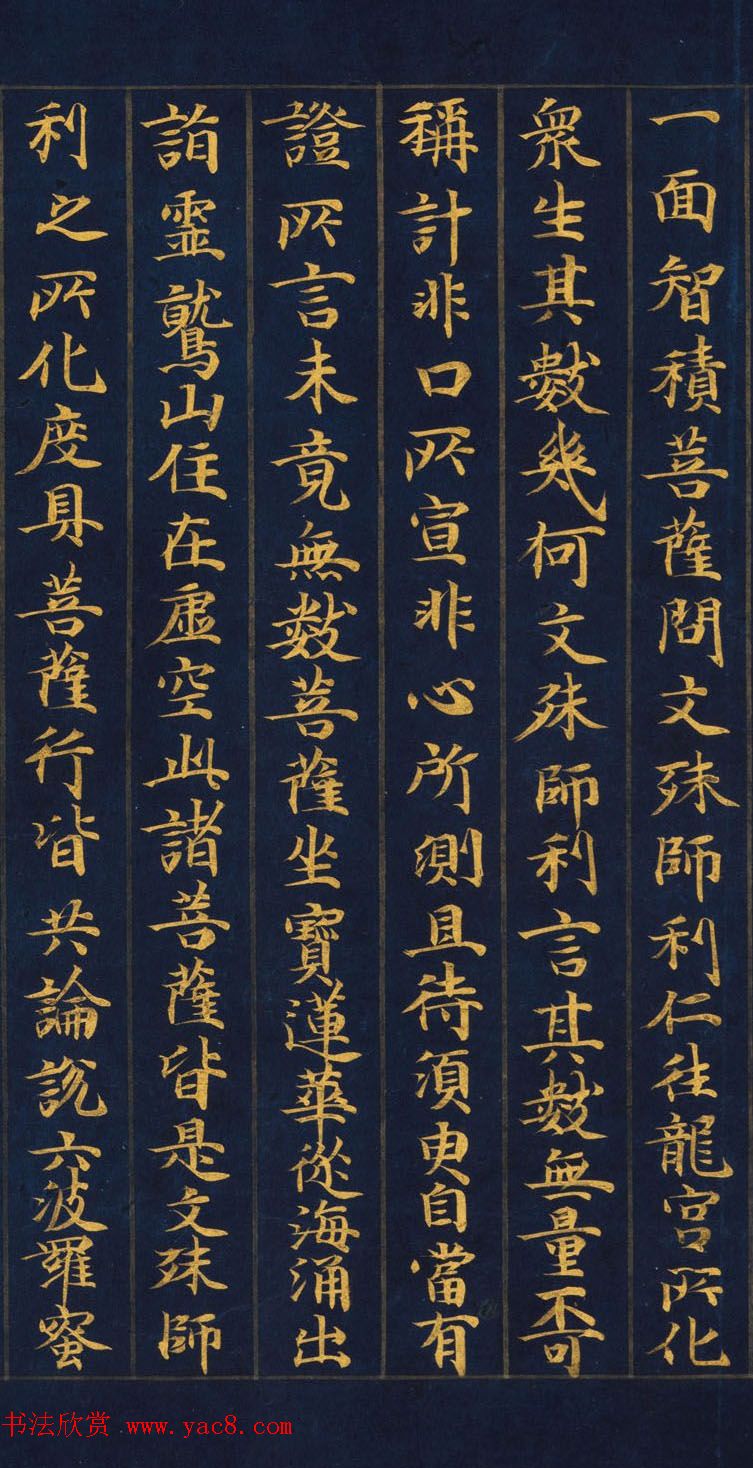 一面智積菩薩問文殊師利仁往龍宮所化
衆生其數幾何文殊師利言其數無量不可
稱計非口所宣非心所測且待須臾自當有
證所言未竟無數菩薩坐寶蓮華從海涌出
詣靈鷲山住在虛空此諸菩薩皆是文殊師
利之所化度具菩薩行皆共論說六波羅蜜
书法欣赏 www.yac8.com